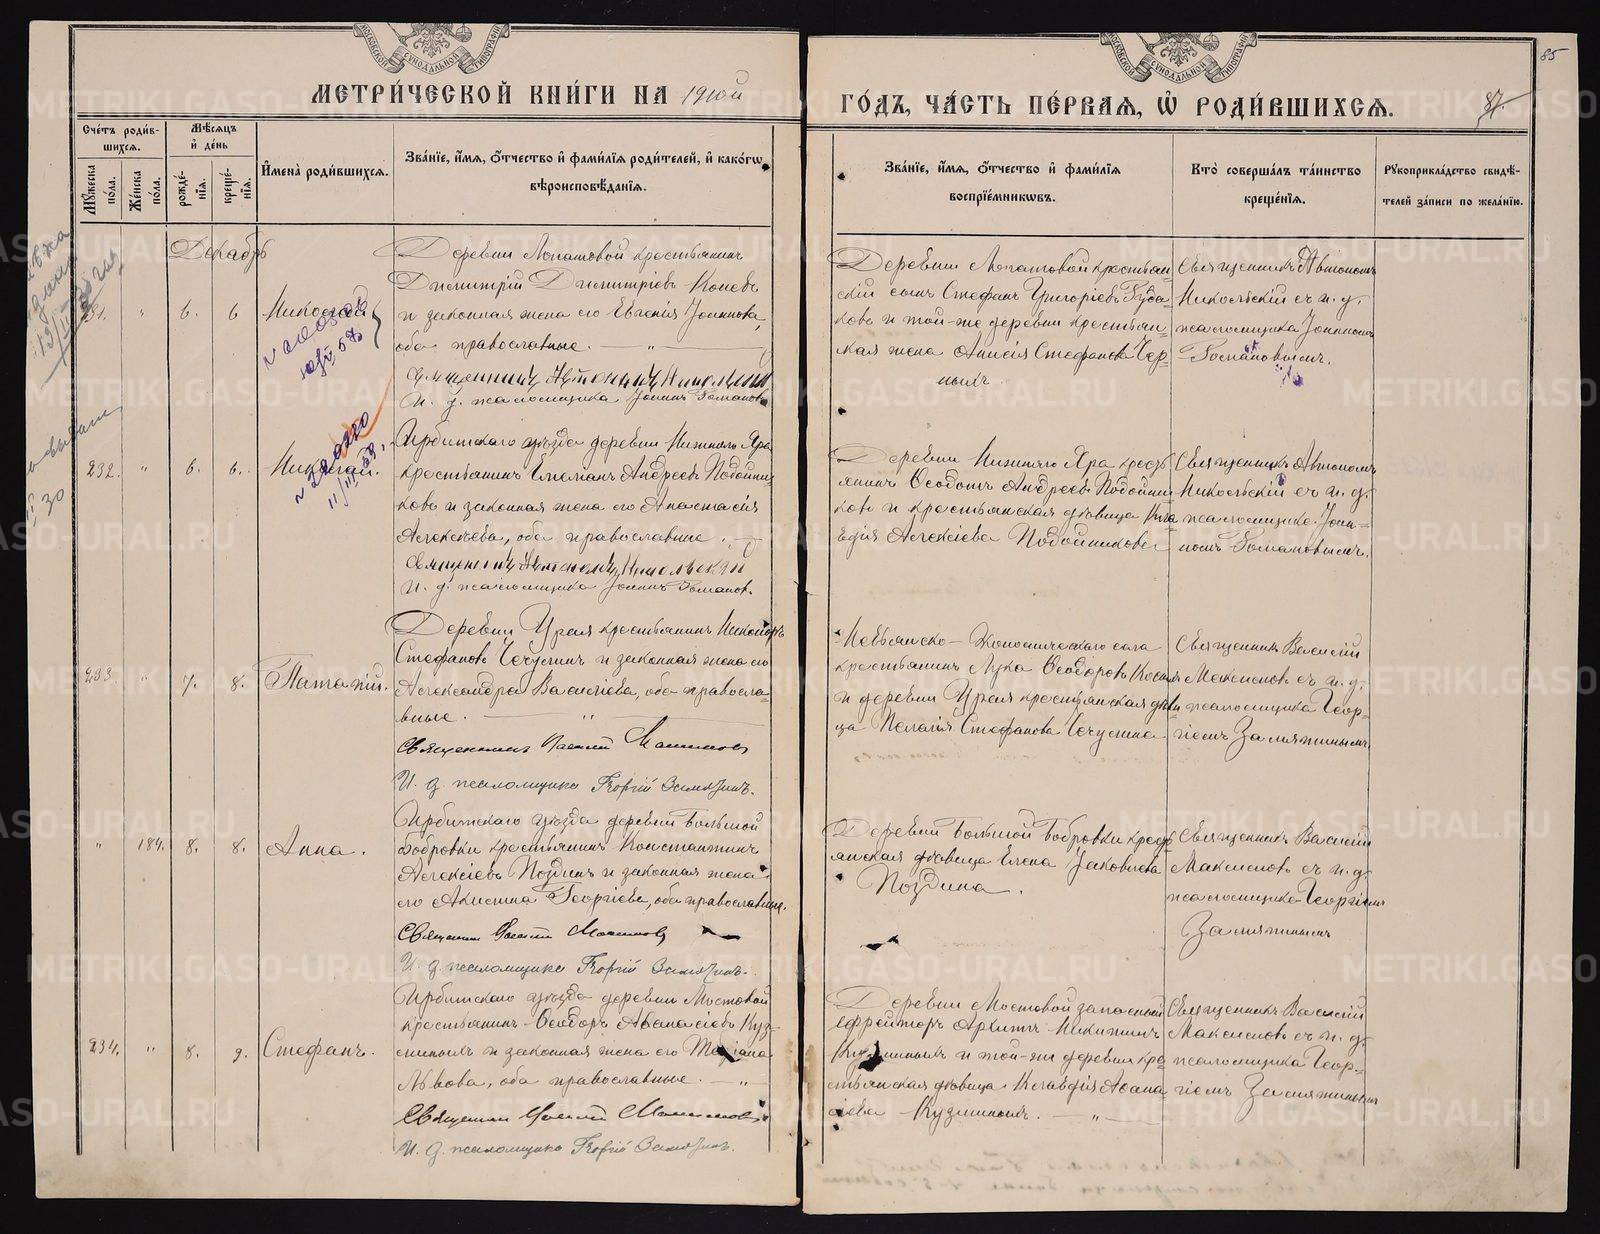 МЕТРИ́ЧЕСКОЙ КНИ́ГИ НА 1910й
ГО́ДЪ, ЧА́СТЬ ПЕ́РВАЯ, Ѡ РОДИ́ВШИХСЯ.
85
87.
Сче́тъ роди́в-
шихся.
Мѣ́сяцъ
и҆ де́нь
Му́жеска
по́ла.
Же́нска
по́ла.
рожде́-
нїя.
креще́-
нїя.
И҆мена̀ роди́вшихся.
Зва́нїе, и҆́мя, ѻ҆́тчество и҆ фами́лїя роди́телей, и҆ како́гѡ
вѣроисповѣ́данїя.
Зва́нїе, и҆́мя, ѻ҆́тчество и҆ фами́лїя
воспрїе́мникѡвъ.
Кто̀ соверша́лъ та́инство
креще́нїя.
Рꙋкоприкла́дство свидѣ́-
телей за́писи по жела́нїю.
Декабрь
231. " 6. 6 Николай
Деревни Лопатовой крестьянинъ
Димитрій Димитріевъ Коневъ
и законная жена его Евгенія Іоаннова,
оба православные. — " —
Священникъ Автономъ Никольскій
И. д. псаломщика Іоаннъ Гомановъ
Деревни Лопатовой крестьян-
скій сынъ Стефанъ Григоріевъ
ковъ и той-же деревни крестьян-
ская жена Анисія Стефанова Чер-
ныхъ.
Священникъ Автономъ
Никольскій съ и. д.
псаломщика Іоанномъ
Гомановымъ.
232. " 6. 6. Николай.
Ирбитскаго уѣзда деревни Нижняго Яра
крестьянинъ Емеліанъ Андреевъ Подойни
ковъ и законная жена его Анастасія
Алексѣева, оба православные.
Священникъ Автономъ Никольскій
И. д. псаломщика Іоаннъ Гомановъ.
Деревни Нижняго Яра кресть
янинъ Ѳеодотъ Андреевъ Подойни
ковъ и крестьянская дѣвица Кла
вдія Алексіева Подойникова
Священникъ Автономъ
Никольскій съ и. д.
псаломщика Іоан-
номъ Гомановымъ.
233. " 7. 8. Патапій.
Деревни Урая крестьянинъ Никаноръ
Стефановъ Чечулинъ и законная жена его
Александра Василіева, оба правосла-
вные. — " —
Священникъ Василій Максимовъ
И. д. псаломщика Георгій Замятинъ.
Невьянско- села
крестьянинъ Лука Ѳеодоровъ
и деревни Урая крестьянская дѣви
ца Пелагія Стефанова Чечулина
Священникъ Василій
Максимовъ съ и. д.
псаломщика Геор-
гіемъ Замятинымъ.
" 184. 8. 8. Анна.
Ирбитскаго уѣзда деревни Большой
Бобровки крестьянинъ Константинъ
Алексіевъ Поздинъ и законная жена
его Акилина Георгіева, оба православные.
Священникъ Василій Максимовъ
И. д. псаломщика Георгій Замятинъ.
Деревни Большой Бобровки кресть
янская дѣвица Елена Іаковлева
Поздина.
Священникъ Василій
Максимовъ съ и. д.
псаломщика Георгіемъ
Замятинымъ
234. " 8. 9. Стефанъ.
Ирбитскаго уѣзда деревни Мостовой
крестьянинъ Ѳеодоръ Аѳанасіевъ Куз-
миныхъ и законная жена его Татіана
Львова, оба православные. — " —
Священникъ Василій Максимовъ
И. д. псаломщика Георгій Замятинъ.
Деревни Мостовой запасный
ефрейторъ Архипъ Никитинъ
Кузминыхъ и той-же деревни кре
стьянская дѣвица Клавдія Аѳана
сіева Кузминыхъ. — " —
Священникъ Василій
Максимовъ съ и. д.
псаломщика Геор-
гіемъ Замятинымъ
METRIKI.GASO-URAL.RU